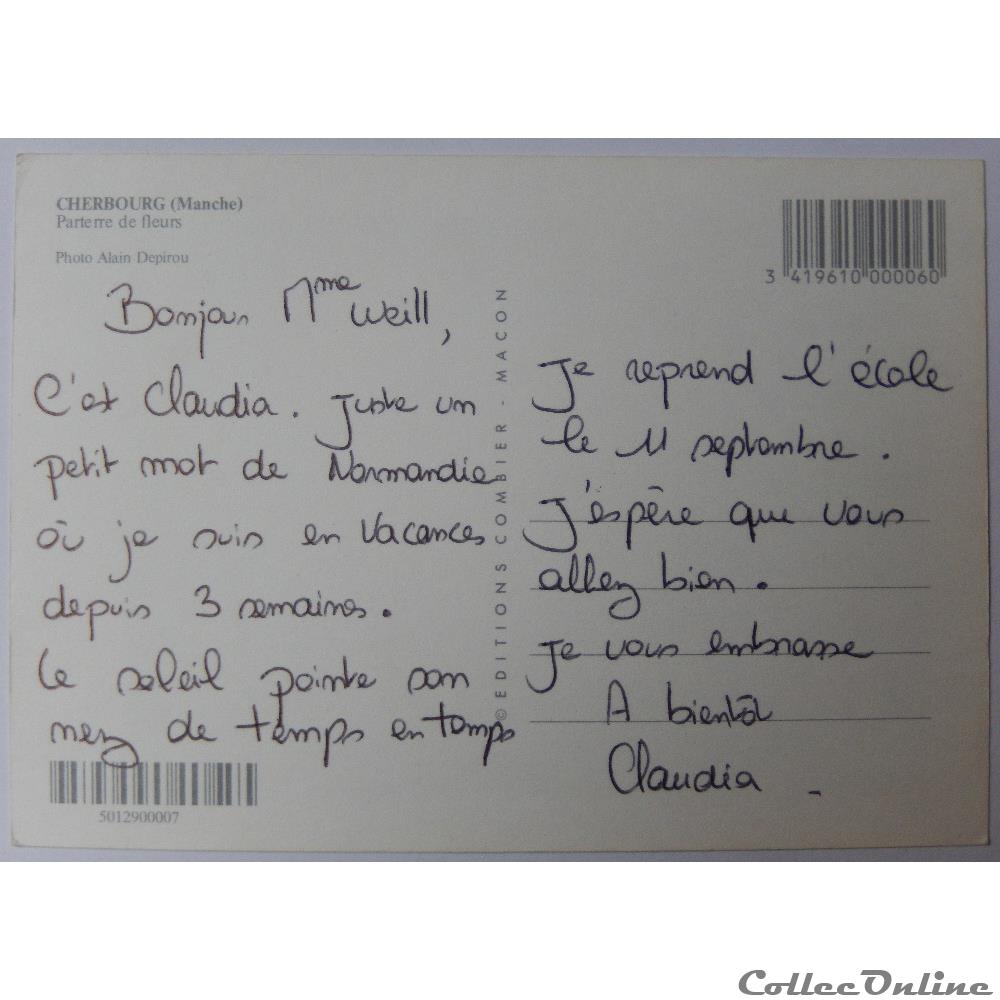 CHERBOURG (Manche)
Parterre de fleurs
Photo Alain Depirou
3 419610 000060
Bonjour Mme Weill,
C'est Claudia. Juste un
petit mot de Normandie
où je suis en vacances
depuis 3 semaines.
Le soleil pointe son
nez de temps en temps
5012900007
© EDITIONS COMBIER - MACON
Je reprend l'école
le 11 septembre.
J'espère que vous
allez bien.
Je vous embrasse
A bientôt
Claudia -
CollecOnline